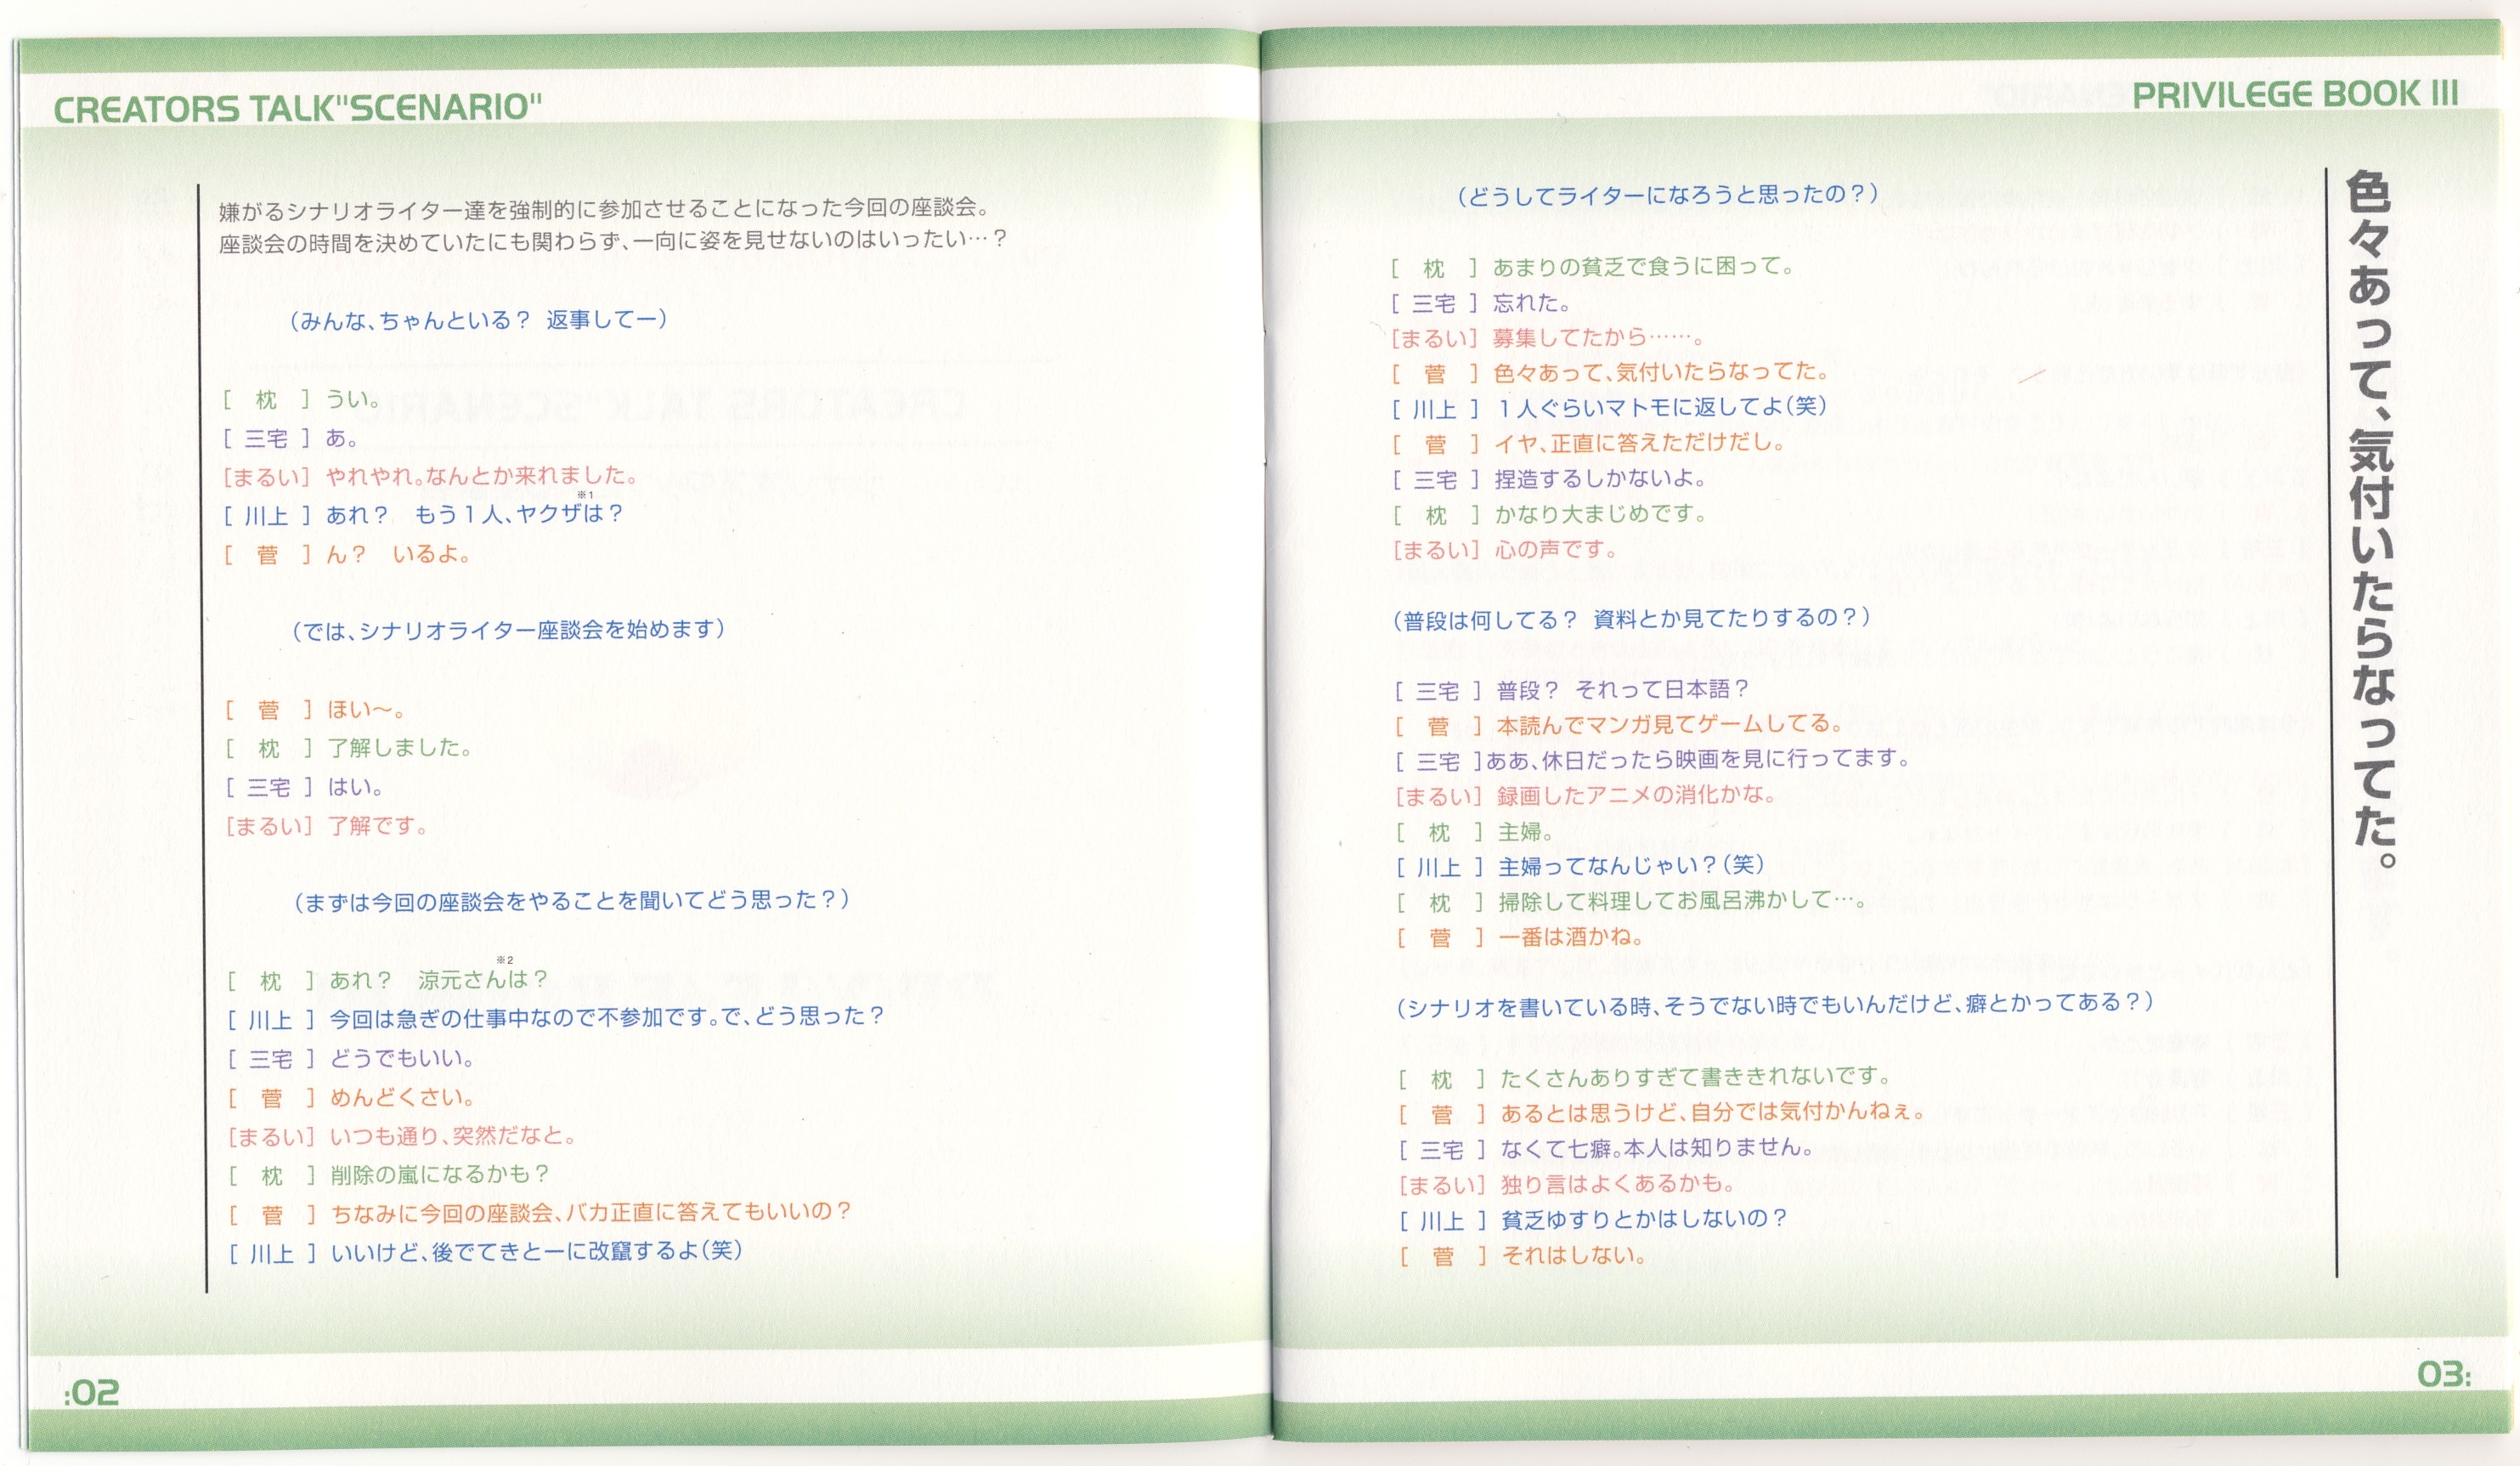 CREATORS TALK"SCENARIO"
嫌がるシナリオライター達を強制的に参加させることになった今回の座談会。
座談会の時間を決めていたにも関わらず、一向に姿を見せないのはいったい…？
（みんな、ちゃんといる？ 返事してー）
[ 枕 ] うい。
[ 三宅 ] あ。
[まるい] やれやれ。なんとか来れました。
※1
[ 川上 ] あれ？ もう１人、ヤクザは？
[ 菅 ] ん？ いるよ。
（では、シナリオライター座談会を始めます）
[ 菅 ] ほい～。
[ 枕 ] 了解しました。
[ 三宅 ] はい。
[まるい] 了解です。
（まずは今回の座談会をやることを聞いてどう思った？）
※2
[ 枕 ] あれ？ 涼元さんは？
[ 川上 ] 今回は急ぎの仕事中なので不参加です。で、どう思った？
[ 三宅 ] どうでもいい。
[ 菅 ] めんどくさい。
[まるい] いつも通り、突然だなと。
[ 枕 ] 削除の嵐になるかも？
[ 菅 ] ちなみに今回の座談会、バカ正直に答えてもいいの？
[ 川上 ] いいけど、後でてきとーに改竄するよ（笑）
:02
PRIVILEGE BOOK III
色々あって、気付いたらなってた。
（どうしてライターになろうと思ったの？）
[ 枕 ] あまりの貧乏で食うに困って。
[ 三宅 ] 忘れた。
[まるい] 募集してたから……。
[ 菅 ] 色々あって、気付いたらなってた。
[ 川上 ] １人ぐらいマトモに返してよ（笑）
[ 菅 ] イヤ、正直に答えただけだし。
[ 三宅 ] 捏造するしかないよ。
[ 枕 ] かなり大まじめです。
[まるい] 心の声です。
（普段は何してる？ 資料とか見てたりするの？）
[ 三宅 ] 普段？ それって日本語？
[ 菅 ] 本読んでマンガ見てゲームしてる。
[ 三宅 ]ああ、休日だったら映画を見に行ってます。
[まるい] 録画したアニメの消化かな。
[ 枕 ] 主婦。
[ 川上 ] 主婦ってなんじゃい？（笑）
[ 枕 ] 掃除して料理してお風呂沸かして…。
[ 菅 ] 一番は酒かね。
（シナリオを書いている時、そうでない時でもいいんだけど、癖とかってある？）
[ 枕 ] たくさんありすぎて書ききれないです。
[ 菅 ] あるとは思うけど、自分では気付かんねぇ。
[ 三宅 ] なくて七癖。本人は知りません。
[まるい] 独り言はよくあるかも。
[ 川上 ] 貧乏ゆすりとかはしないの？
[ 菅 ] それはしない。
03: